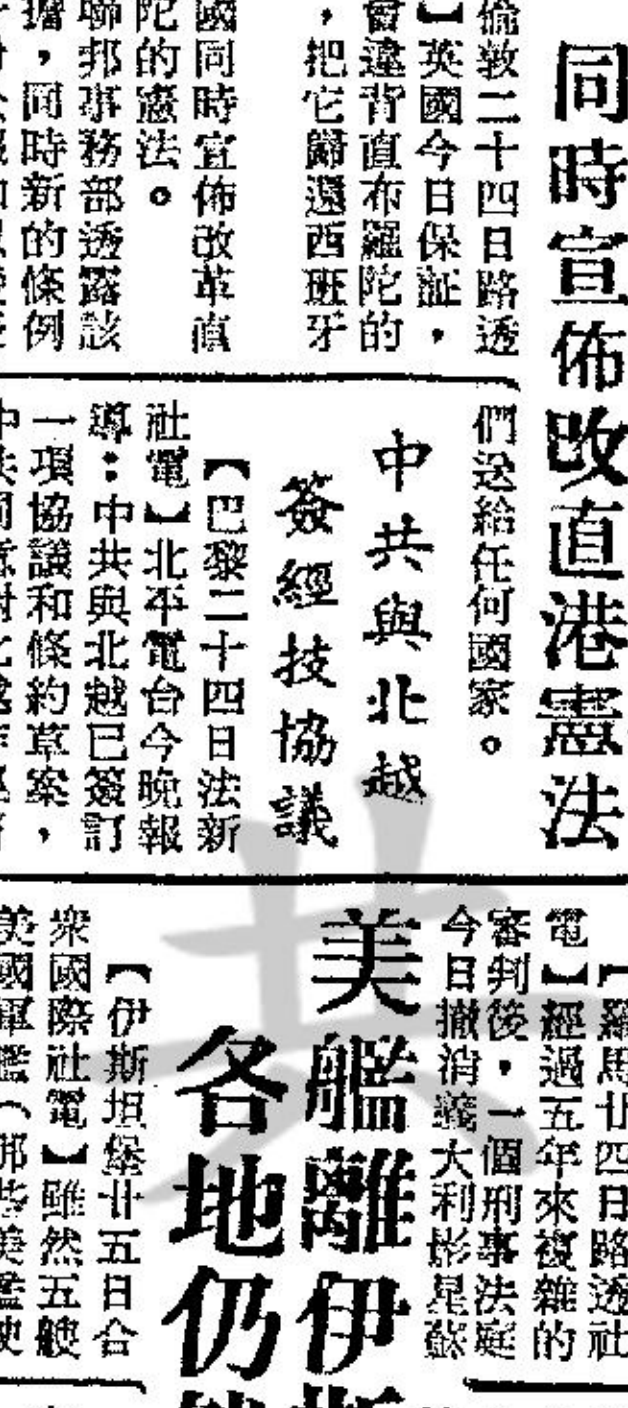 同時宣佈改直港憲法
倫敦二十四日路透
】英國今日保証，
會違背直布羅陀的
，把它歸還西班牙
國同時宣佈改革直
陀的憲法。
聯邦事務部透露該
擔，同時新的條例
們送給任何國家。
中共與北越
簽經技協議
【巴黎二十四日法新
社電】北平電台今晚報
導：中共與北越已簽訂
一項協議和條約草案，
【羅馬廿四日路透社
電】經過五年來複雜的
審判後，一個刑事法庭
今日撤消義大利影星蘇
美艦離伊斯
各地仍
【伊斯坦堡廿五日合
衆國際社電】雖然五艘
美國軍艦（那些美艦使
共